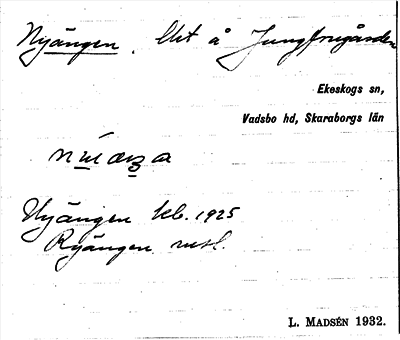 Nyängen. Ut å Jungfrugården
Ekeskogs sn,
Vadsbo hd, Skaraborgs län
Nyängen kb. 1925
Ryängen mtl.
L. MADSÉN 1932.